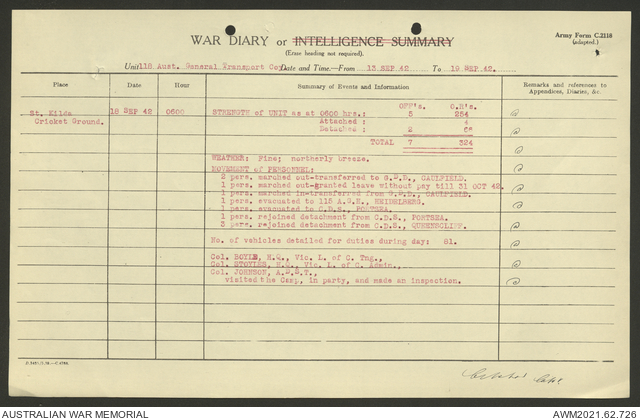 WAR DIARY or INTELLIGENCE SUMMARY
(Erase heading not required).
Army Form C.2118
(adapted.)
Unit 118 Aust. General Transport Coy. Date and Time.—From 13 SEP 42 To 19 SEP 42.
Place Date Hour Summary of Events and Information Remarks and references to Appendices, Diaries, &c.
St. Kilda 18 SEP 42 0600 STRENGTH of UNIT as at 0600 hrs.: OFF's. O.R's.
Cricket Ground. 5 254
Attached : 4
Detached : 2 66
TOTAL 7 324
WEATHER: Fine; northerly breeze.
MOVEMENT of PERSONNEL:
2 pers. marched out-transferred to G.D.D., CAULFIELD.
1 pers. marched out-granted leave without pay till 31 OCT 42.
1 pers. marched in-transferred from G.D.D., CAULFIELD.
1 pers. evacuated to 115 A.G.H., HEIDELBERG.
1 pers. evacuated to C.D.S., PORTSEA.
1 pers. rejoined detachment from C.D.S., PORTSEA.
3 pers. rejoined detachment from C.D.S., QUEENSCLIFF.
No. of vehicles detailed for duties during day: 81.
Col. BOYLE, H.Q., Vic. L. of C. Tng.,
Col. STOYLES, H.Q., Vic. L. of C. Admin.,
Col. JOHNSON, A.D.S.T.,
visited the Camp, in party, and made an inspection.
AUSTRALIAN WAR MEMORIAL
AWM2021.62.726